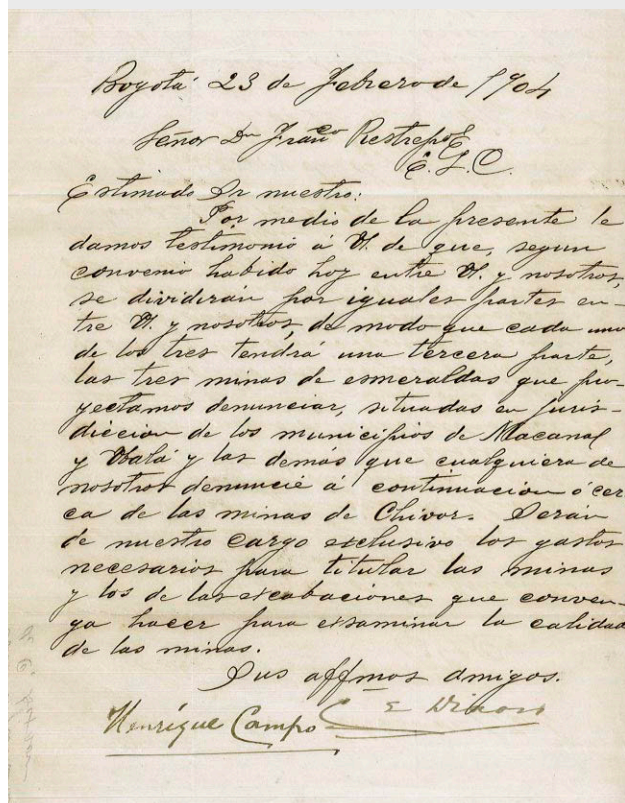 Bogotá 23 de Febrero de 1904
Señor Dn Franco Restrepo E
E. L. C.
Estimado Sr nuestro:
Por medio de la presente le
damos testimonio á V. de que, segun
convenio habido hoy entre V. y nosotros,
se dividirán por iguales partes en-
tre V. y nosotros, de modo que cada uno
de los tres tendrá una tercera parte,
las tres minas de esmeraldas que pro-
yectamos denunciar, situadas en juris-
diccion de los municipios de Macanal
y Ubalá y las demás que cualquiera de
nosotros denuncie á continuacion ó cer
ca de las minas de Chivor. Serán
de nuestro cargo esclusivo los gastos
necesarios para titular las minas
y los de las escabaciones que conven-
ga hacer para essaminar la calidad
de las minas.
Sus affmos amigos.
Henrique Campo C E